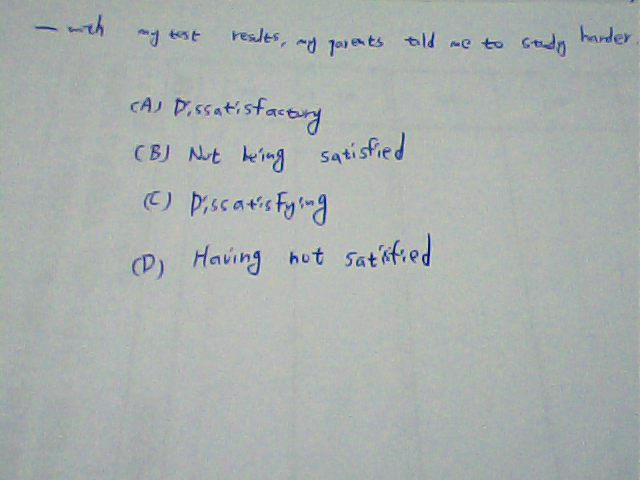 — with my test results, my parents told me to study harder.
(A) Dissatisfactory
(B) Not being satisfied
(C) Dissatisfying
(D) Having not satisfied